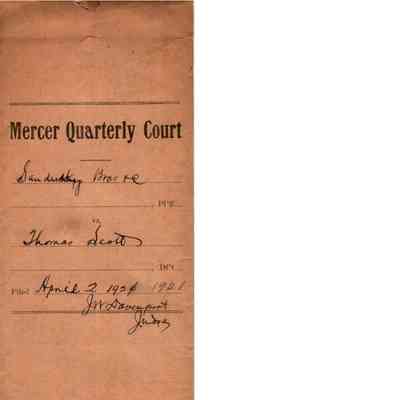 Mercer Quarterly Court
Bros &c
, Plff.
vs
Thomas Scott
, Dft.
Filed April 2 1921 1921
J W Davenport
Judge